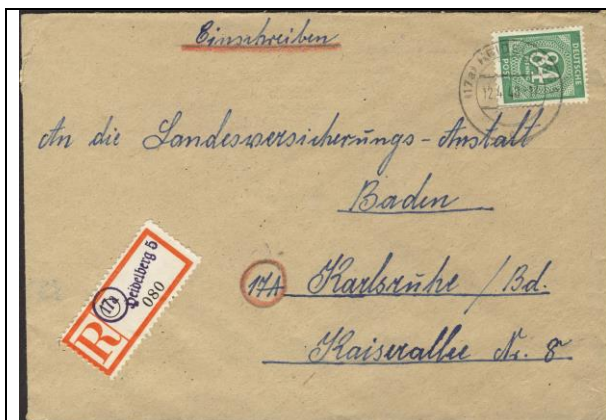 Einschreiben
DEUTSCHE
84
POST
An die Landesversicherungs-Anstalt
Baden
17A Karlsruhe / Bd.
Kaiserallee Nr. 8
R
(17a)
Heidelberg 5
080